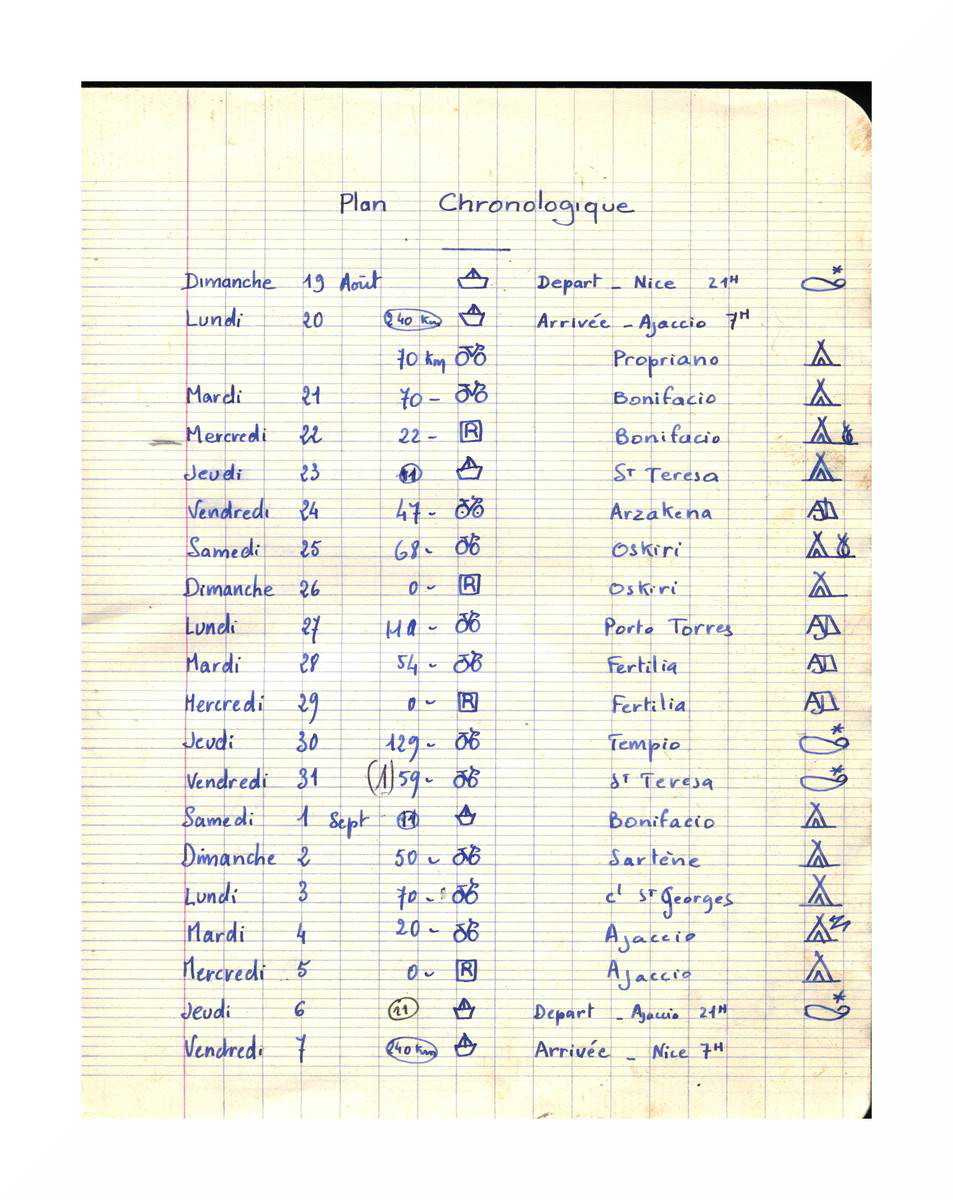 Plan Chronologique
Dimanche 19 Août Depart - Nice 21H
Lundi 20 240 Km Arrivée - Ajaccio 7H
70 km Propriano
Mardi 21 70 - Bonifacio
Mercredi 22 22 - R Bonifacio
Jeudi 23 11 St Teresa
Vendredi 24 47 - Arzakena
Samedi 25 68 - Oskiri
Dimanche 26 0 - R Oskiri
Lundi 27 - Porto Torres
Mardi 28 54 - Fertilia
Mercredi 29 0 - R Fertilia
Jeudi 30 129 - Tempio
Vendredi 31 (1) 59 - St Teresa
Samedi 1 Sept 11 Bonifacio
Dimanche 2 50 - Sartène
Lundi 3 70 - cl St Georges
Mardi 4 20 - Ajaccio
Mercredi 5 0 - R Ajaccio
Jeudi 6 Depart - Ajaccio 21H
Vendredi 7 240 Km Arrivée - Nice 7H